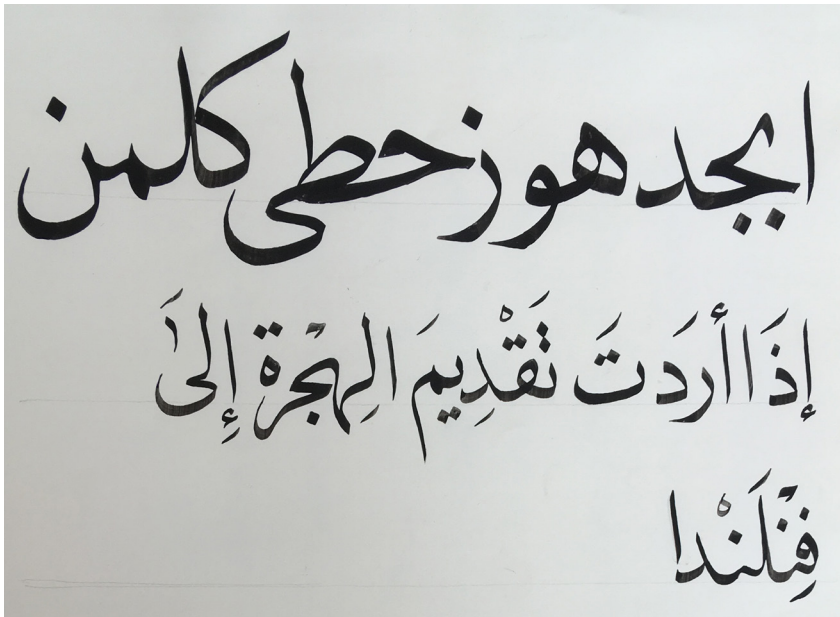 ابجد هوز حطي كلمن
إِذَا أَرَدتَ تَقْدِيمَ الهِجْرة إِلىَٰ
فِنْلَنْدا